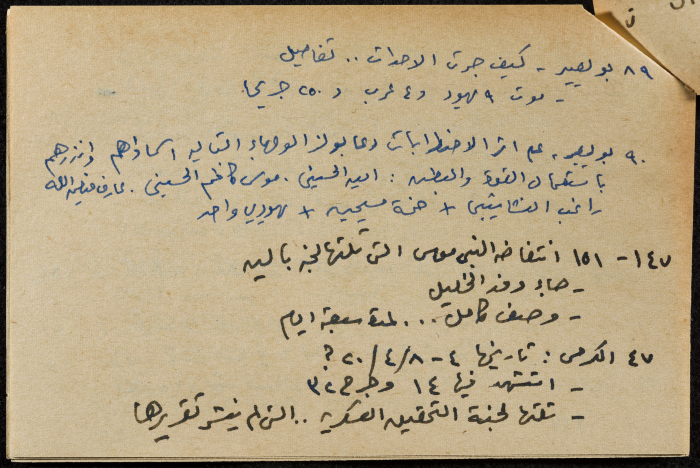 ٨٩ بويير - كيف جرت الاحداث .. تفاصيل
- موت ٩ يهود و ٤ عرب و ٢٥٠ جريحا.
٩٠ بويير، عم اثر الاضطرابات دعا بولز الوجهاء التاليه اسماؤهم وانذرهم
باستعمال القوة والبطش : امين الحسيني . موسى كاظم الحسيني . عارف
راغب النشاشيبي + خمسة مسيحيين + يهودي واحد
١٤٧ - ١٥١ انتفاضة النبي موسى التي تلتها لجنة بالين
- جاء وفد الخليل
- وصف كامل ... لمدة سبعة ايام
٤٧ الكرمل : تاريخها ٤ - ٨ / ٤ / ٢٠ ؟
- استشهد فيها ١٤ وجرح ٣٢
- تلتها لجنة التحقيق العسكرية .. التي لم ينشر تقريرها